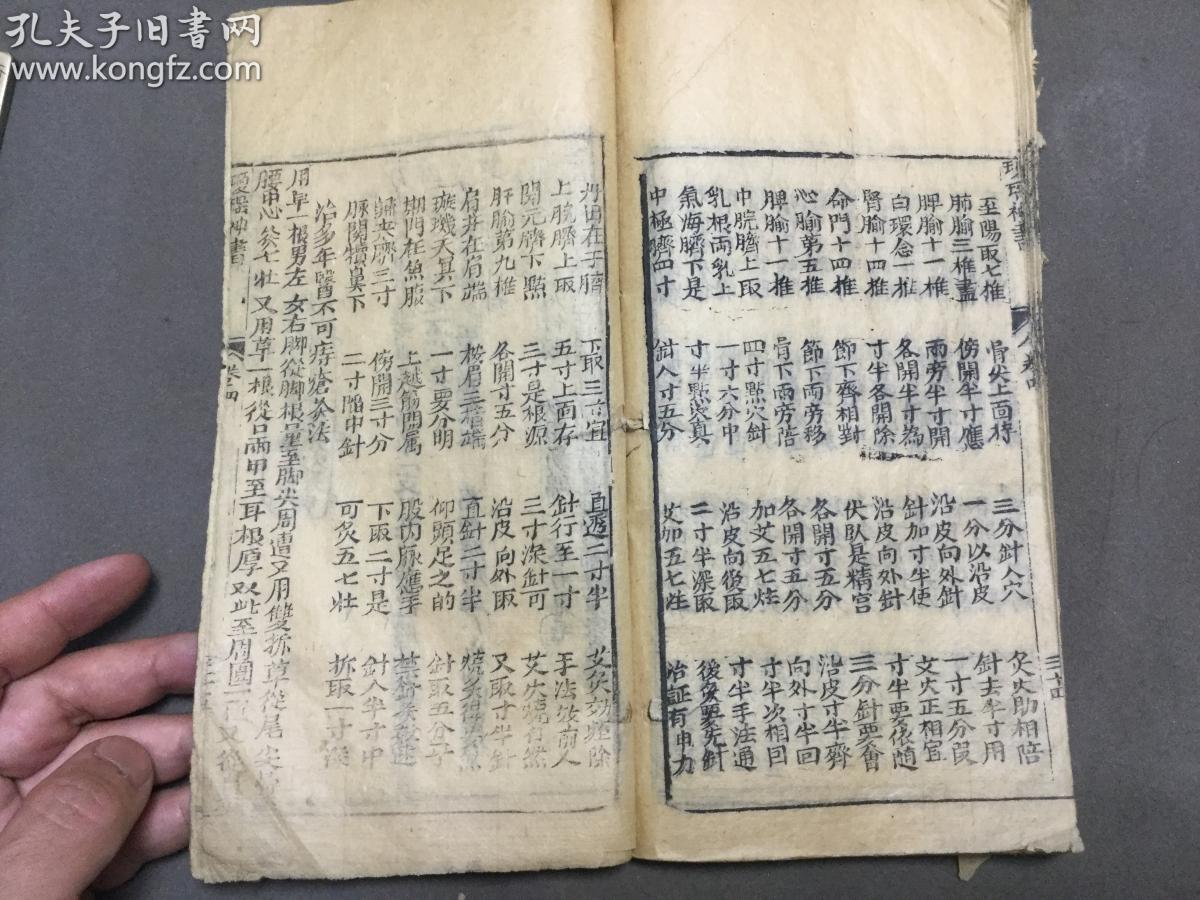 孔夫子旧书网
www.kongfz.com
卷四
三十四
至陽取七椎 骨尖上面持 三分針入穴 灸火助相陪
肺腧三椎盡 傍開半寸應 一分以沿皮 針去半寸用
脾腧十一椎 兩旁半寸開 沿皮向外針 一寸五分叚
白環念一椎 各開半寸為 針加寸半使 艾火正相宜
腎腧十四椎 寸半各開除 沿皮向外針 寸半要依随
命門十四椎 節下齊相對 伏臥是精宮 三分針要會
心腧第五椎 節下兩旁移 各開寸五分 沿皮寸半齊
脾腧十一椎 骨下兩旁陪 各開寸五分 向外寸半回
中脘臍上取 一寸六分中 加艾五七炷 寸半次相回
乳根兩乳上 四寸點穴針 沿皮向後取 寸半手法通
氣海臍下是 寸半點深真 二寸半深取 後要先針
中極臍四寸 針入寸五分 艾加五七炷 治証有申力
丹田在子臍 下取三寸宜 直透二寸半 艾灸効 除
上脘臍上取 五寸上面存 針行至一寸 手法效前人
関元臍下㸃 三寸是根源 三寸深針可 艾火燒自然
肝腧第九椎 各開寸五分 沿皮向外取 又取寸半針
肩井在肩端 直針二寸半
璇璣天其下 一寸要分明 仰頭足之的 針取五分子
期門在魚腹 上越筋間属 股内脉應手 禁針灸
臍三寸 傍開三寸分 下取二寸是 針入半寸中
犢鼻下 二寸陷中針 可灸五七壯 拆取一寸深
治多年醫不可痔瘡灸法
用草一根男左女右脚從脚根量至脚尖周遭又用雙折草從尾尖
腰中心灸七壯又用草一根從口兩甲至耳根厚双此至周圓一百又後
神書
卷之四